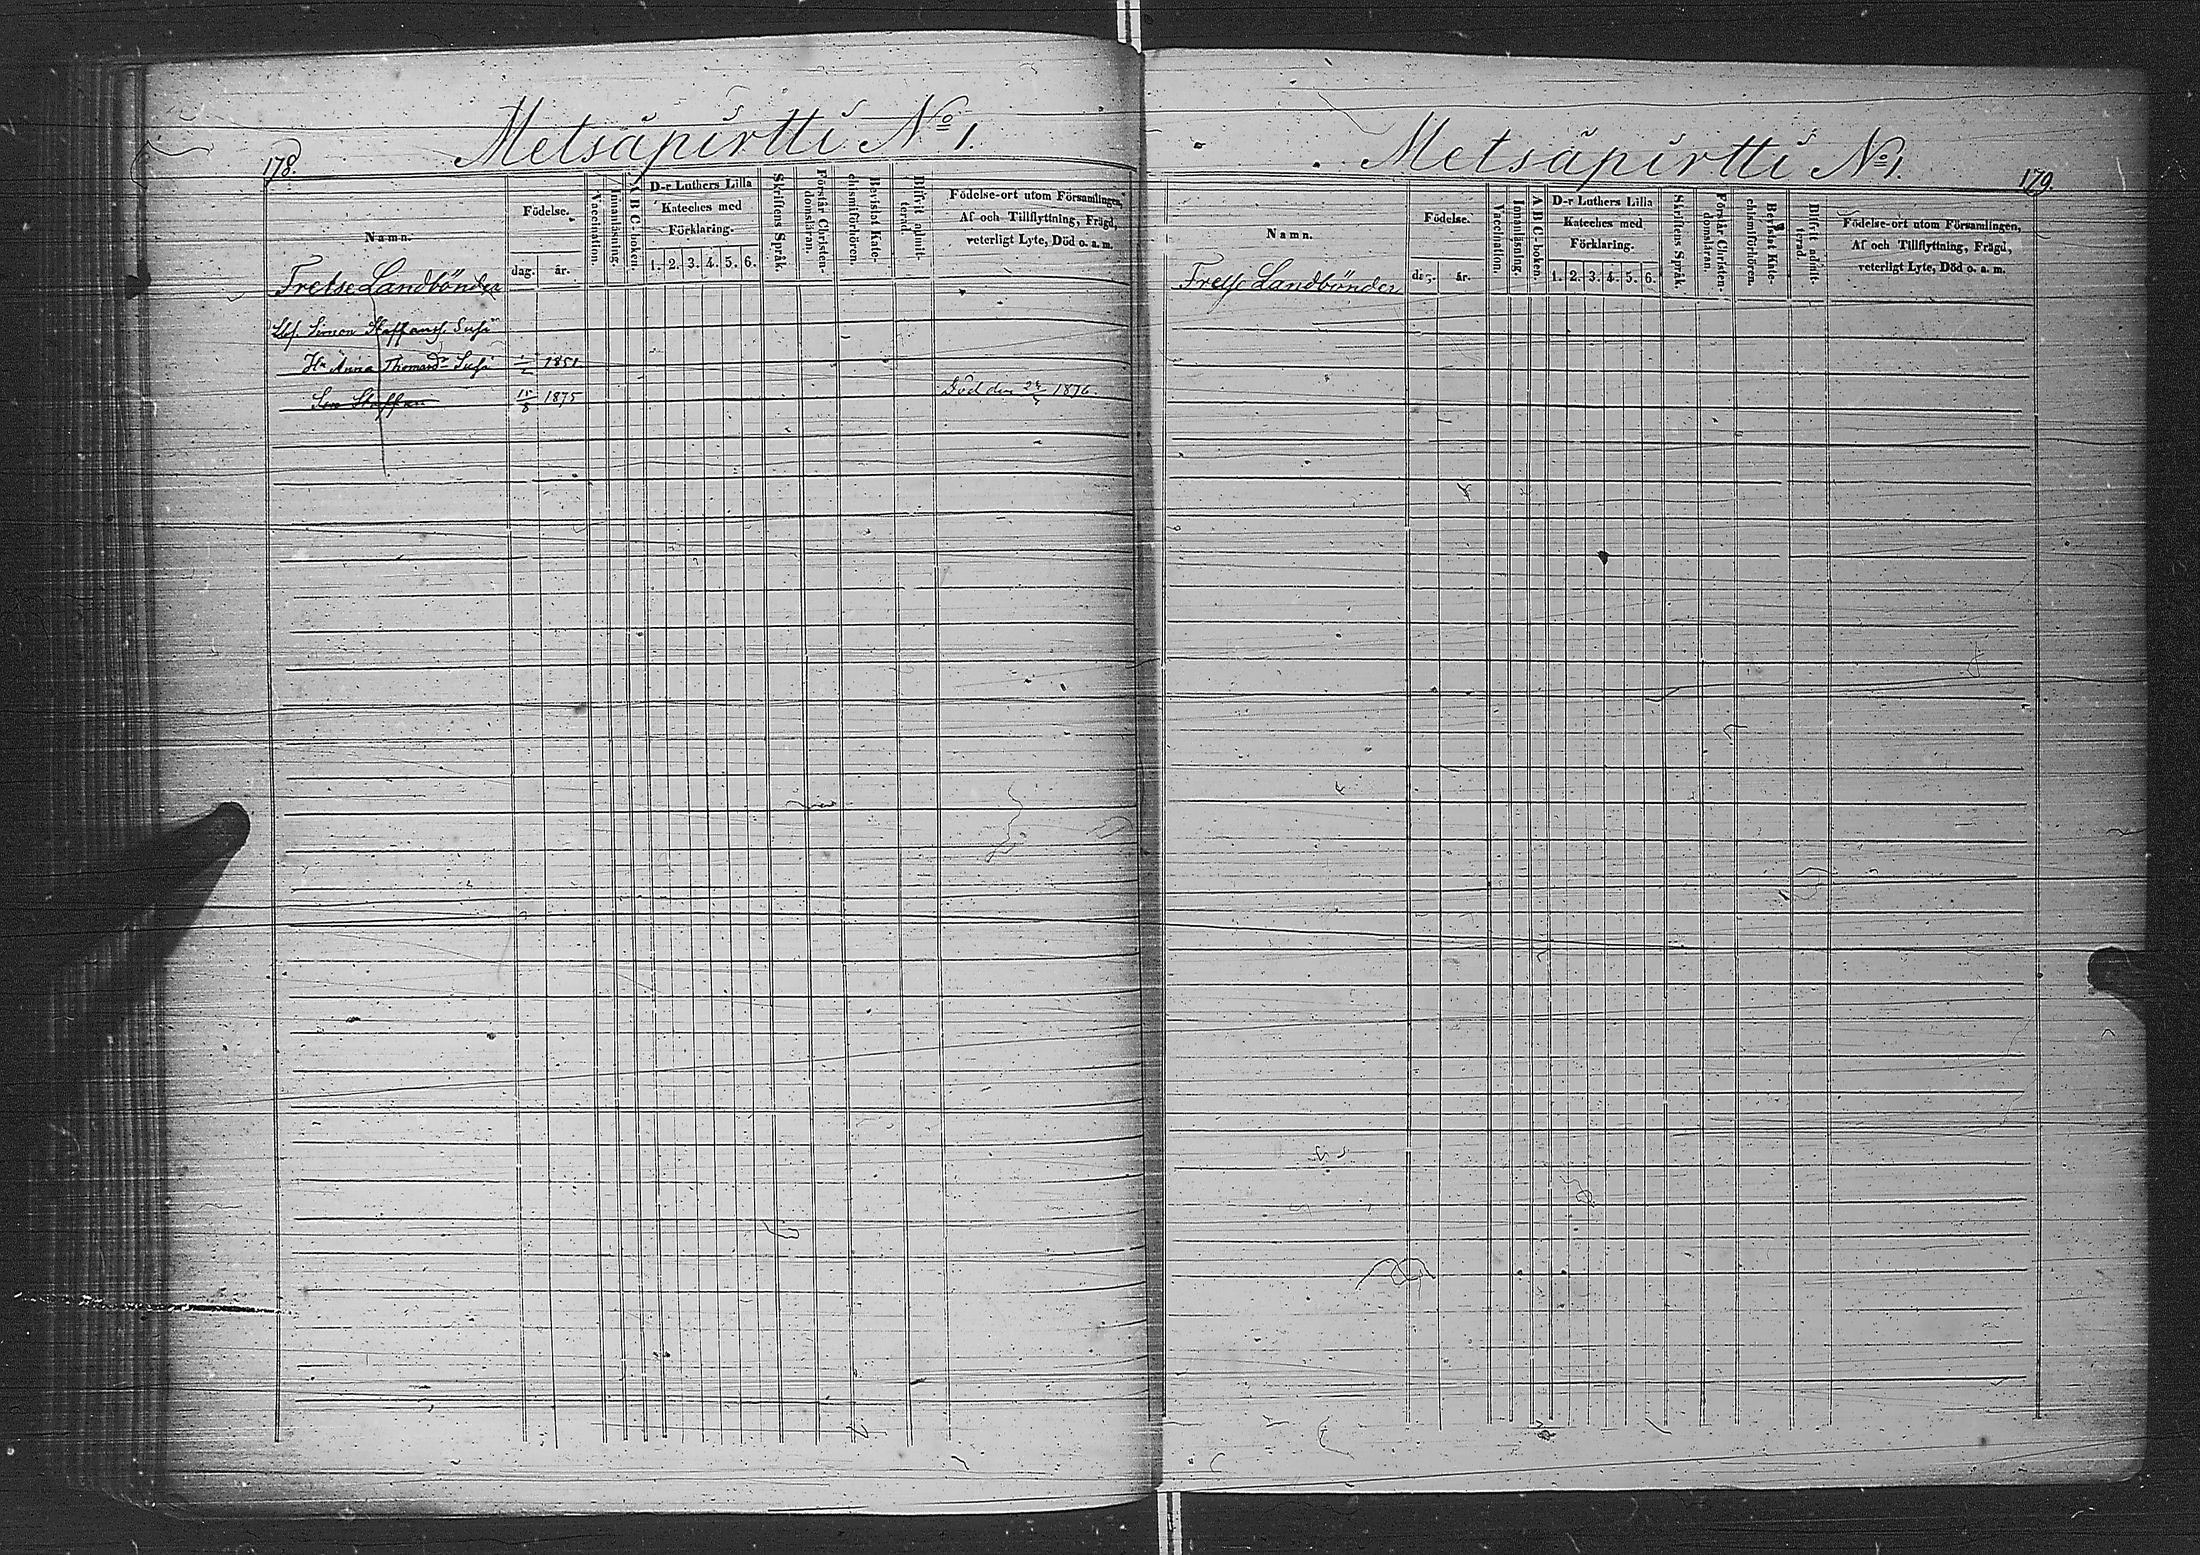 178.
Metsäpirtti No 1.
Namn.
Födelse.
dag. år.
Vaccination.
Innanläsning.
A B C-boken.
D-r Luthers Lilla
Kateches med
Förklaring.
1. 2. 3. 4. 5. 6.
Skriftens Språk.
Förstår Christen-
domsläran.
Bevistat Kate-
chismiförhören.
Blifvit admit-
terad.
Födelse-ort utom Församlingen,
Af och Tillflyttning, Frägd,
veterligt Lyte, Död o. a. m.
Frelse Landbönder
Simon Staffanss. Susi
Hu Anna Thomasdr Susi 1851.
Son Staffan 15/8 1875 Död den 1876.
Metsäpirtti No 1.
179.
Namn.
Födelse.
dag. år.
Vaccination.
Innanläsning.
A B C-boken.
D-r Luthers Lilla
Kateches med
Förklaring.
1. 2. 3. 4. 5. 6.
Skriftens Språk.
Förstår Christen-
domsläran.
Bevistat Kate-
chismiförhören.
Blifvit admit-
terad.
Födelse-ort utom Församlingen,
Af och Tillflyttning, Frägd,
veterligt Lyte, Död o. a. m.
Frelse Landbönder